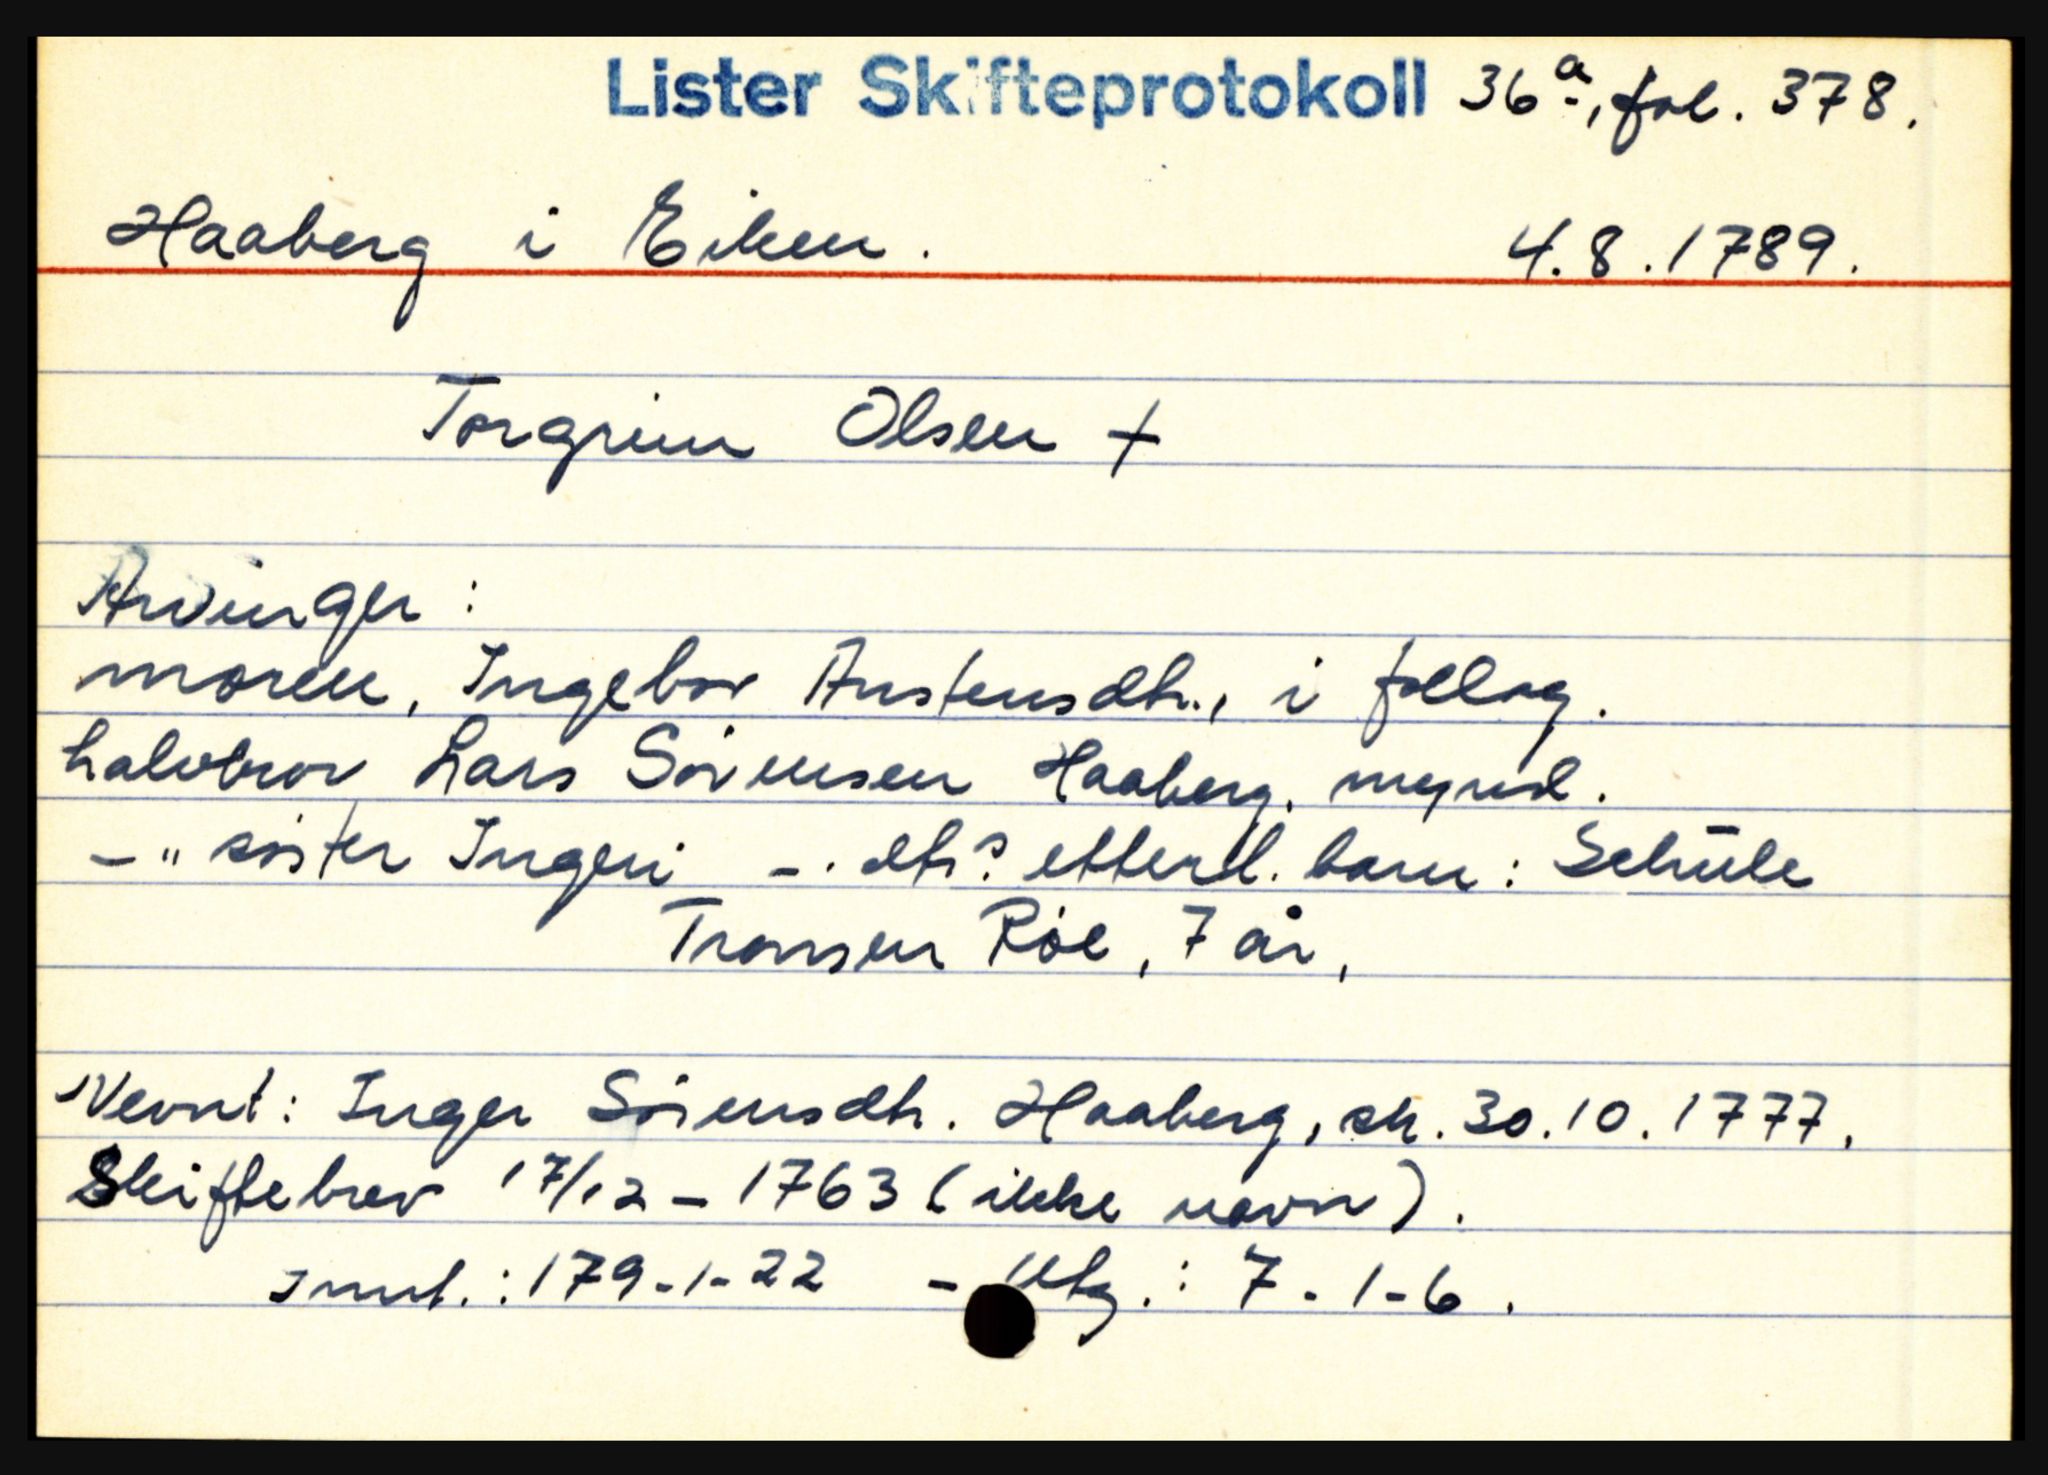 Lister Skifteprotokoll 36a, fol. 378.
Haaberg i Eiken. 4.8.1789.
Torgrim Olsen †
Arvinger:
moren, Ingebor Austensdtr., i fellag.
halvbror Lars Sörensen Haaberg, mynd.
-"söster Ingeri -. dtrs etterl. barn: Schüle
Tronsen Röe, 7 år,
Nevnt: Inger Sörensdtr. Haaberg, sk. 30.10.1777.
Skiftebrev 17/12 - 1763 (ikke navn).
Innt.: 179-1-22 - Utg.: 7-1-6.